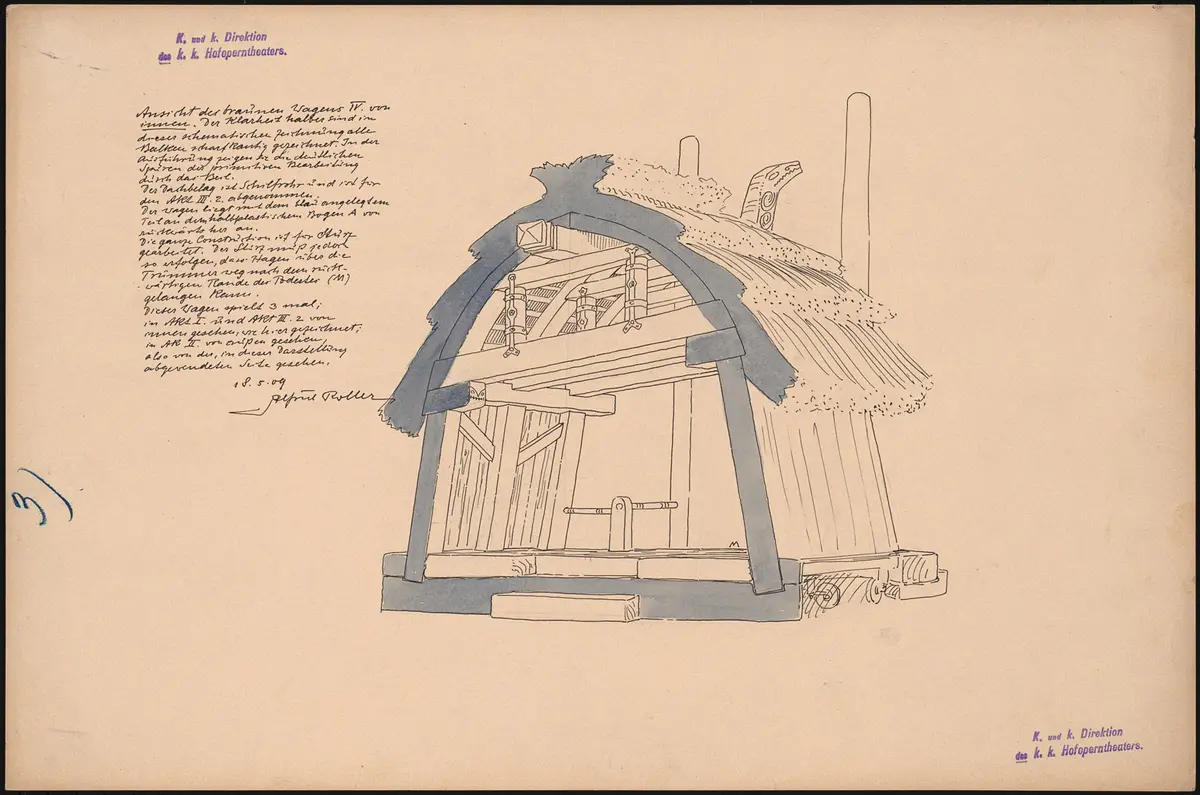 K. und k. Direktion
des k. k. Hofoperntheaters.
Ansicht des braunen Wagens IV. von
innen. Der Klarheit halber sind in
dieser schematischen Zeichnung alle
Balken scharfkantig gezeichnet. In der
Ausführung zeigen sie die deutlichen
Spuren der primitiven Bearbeitung
durch das Beil.
Der Dachbelag ist Schilfrohr und ist für
den Akt III. 2. abgenommen.
Der Wagen liegt mit dem blau angelegten
Teil an dem halbplastischen Bogen A von
rückwärts her an.
Die ganze Construction ist für Sturz
gearbeitet. Der Sturz muß jedoch
so erfolgen, dass Hagen über die
Trümmer weg nach dem rück-
wärtigen Rande des Podestes (M)
gelangen kann.
Dieser Wagen spielt 3 mal;
im Akt I. und Akt III. 2 von
innen gesehen, wie hier gezeichnet;
im Akt II. von außen gesehen,
also von der, in dieser Darstellung
abgewendeten Seite gesehen.
18. 5. 09
Alfred Roller
3)
M
K. und k. Direktion
des k. k. Hofoperntheaters.